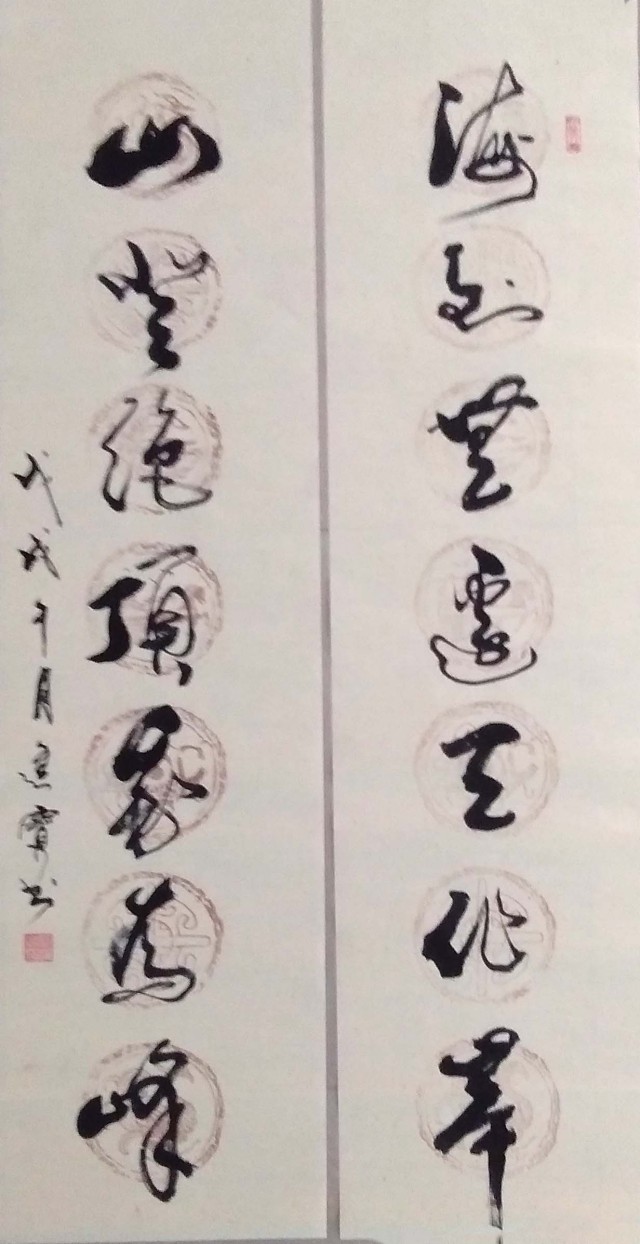 海到無邊天作岸
山登絶頂我為峰
戊戌午月寶书